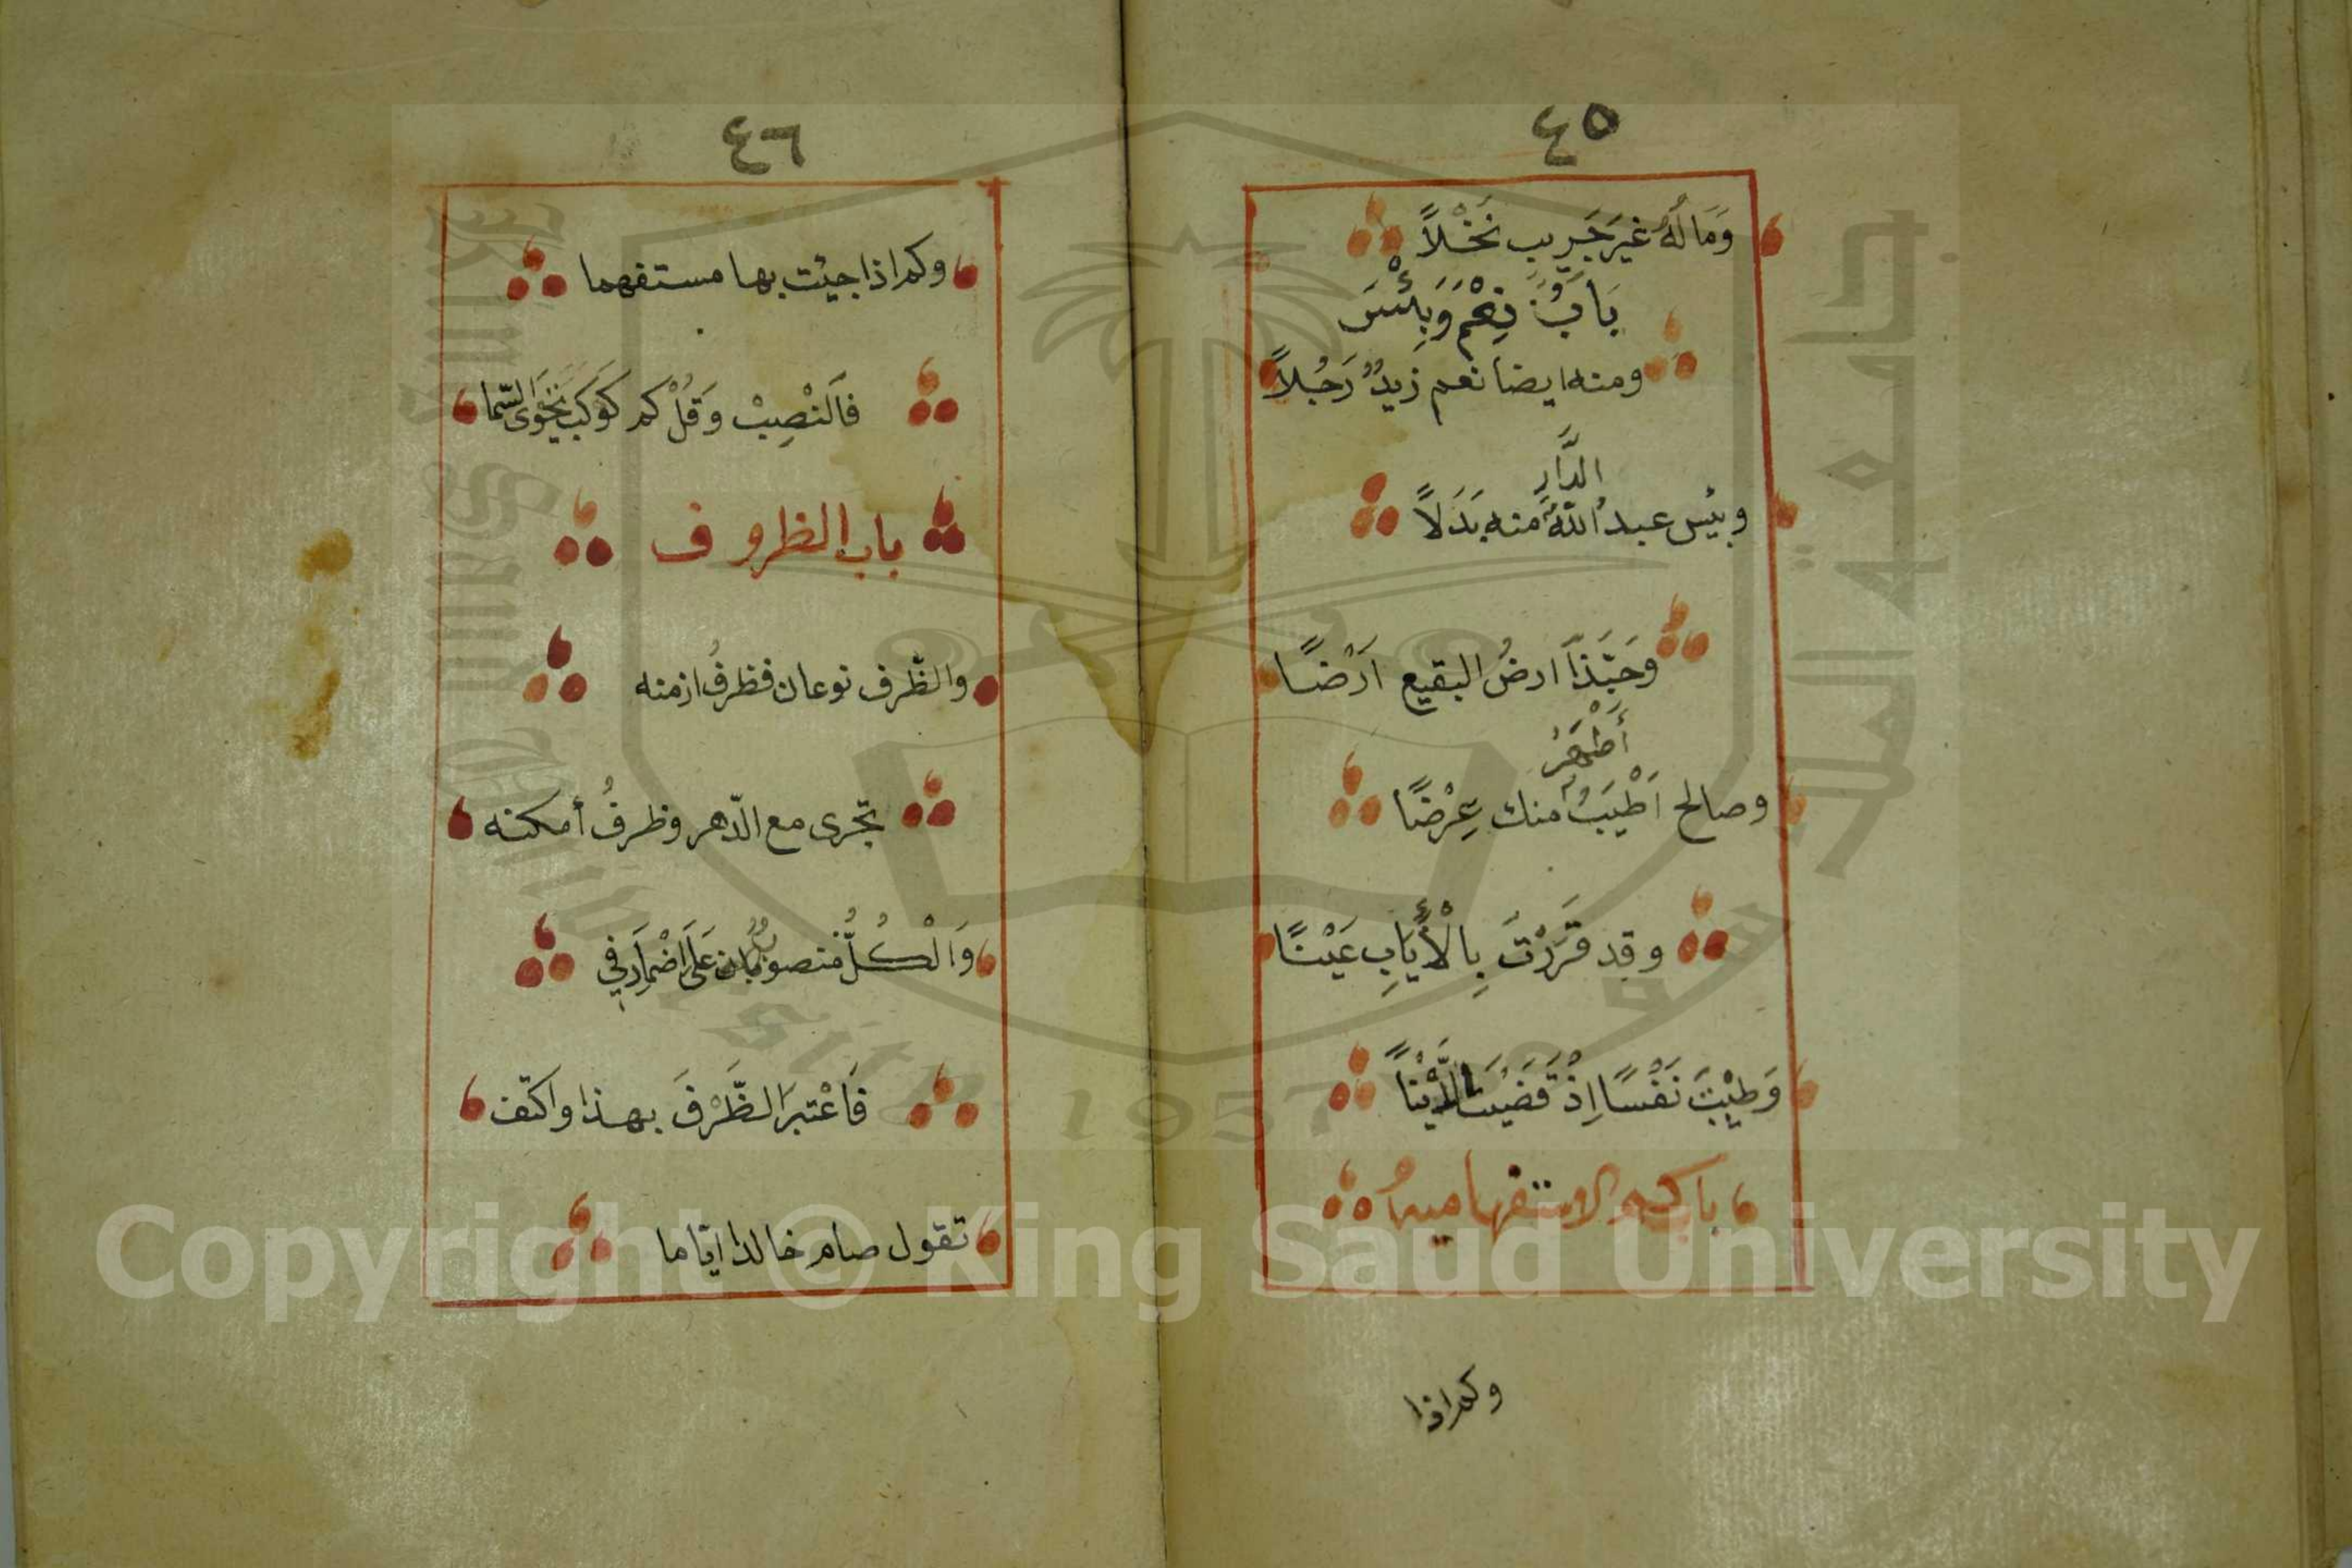 ٤٥
وَمَا لَهُ غَيْرَ جَرِيبٍ نَخْلاً
بَابُ نِعْمَ وَبِئْسَ
ومنه ايضا نعم زيدٌ رَجُلاً
الدَّارِ
وبئس عبدُ اللهِ منه بَدَلاً
وَحَبَّذَا ارضُ البقيع اَرْضًا
أَطْهَرُ
وصالح اَطْيَبُ منك عِرْضًا
وقد قَرَرْتَ بِالْأَيَابِ عَيْنًا
وَطِبْتَ نَفْسًا اِذْ قَضَيْتَ الدَّيْنَا
باب كم الاستفهامية
وكم اذا
٤٦
وكم اذا جيئت بها مستفهما
فَالنْصِبْ وَقُلْ كم كَوْكَبًا تَحْوِى السَّما
باب الظروف
والظّرف نوعان فظرفُ ازمنه
تجّرى مع الدّهر وظرفُ أمكنه
وَالْكُلُّ منصوبٌ عَلَى اَضْمَارِ فِى
فَاعْتَبِرَ الظَّرْفَ بهذا واكتف
تقول صام خالد ايّاما
Copyright © King Saud University
جامعة الملك سعود
King Saud University
1957